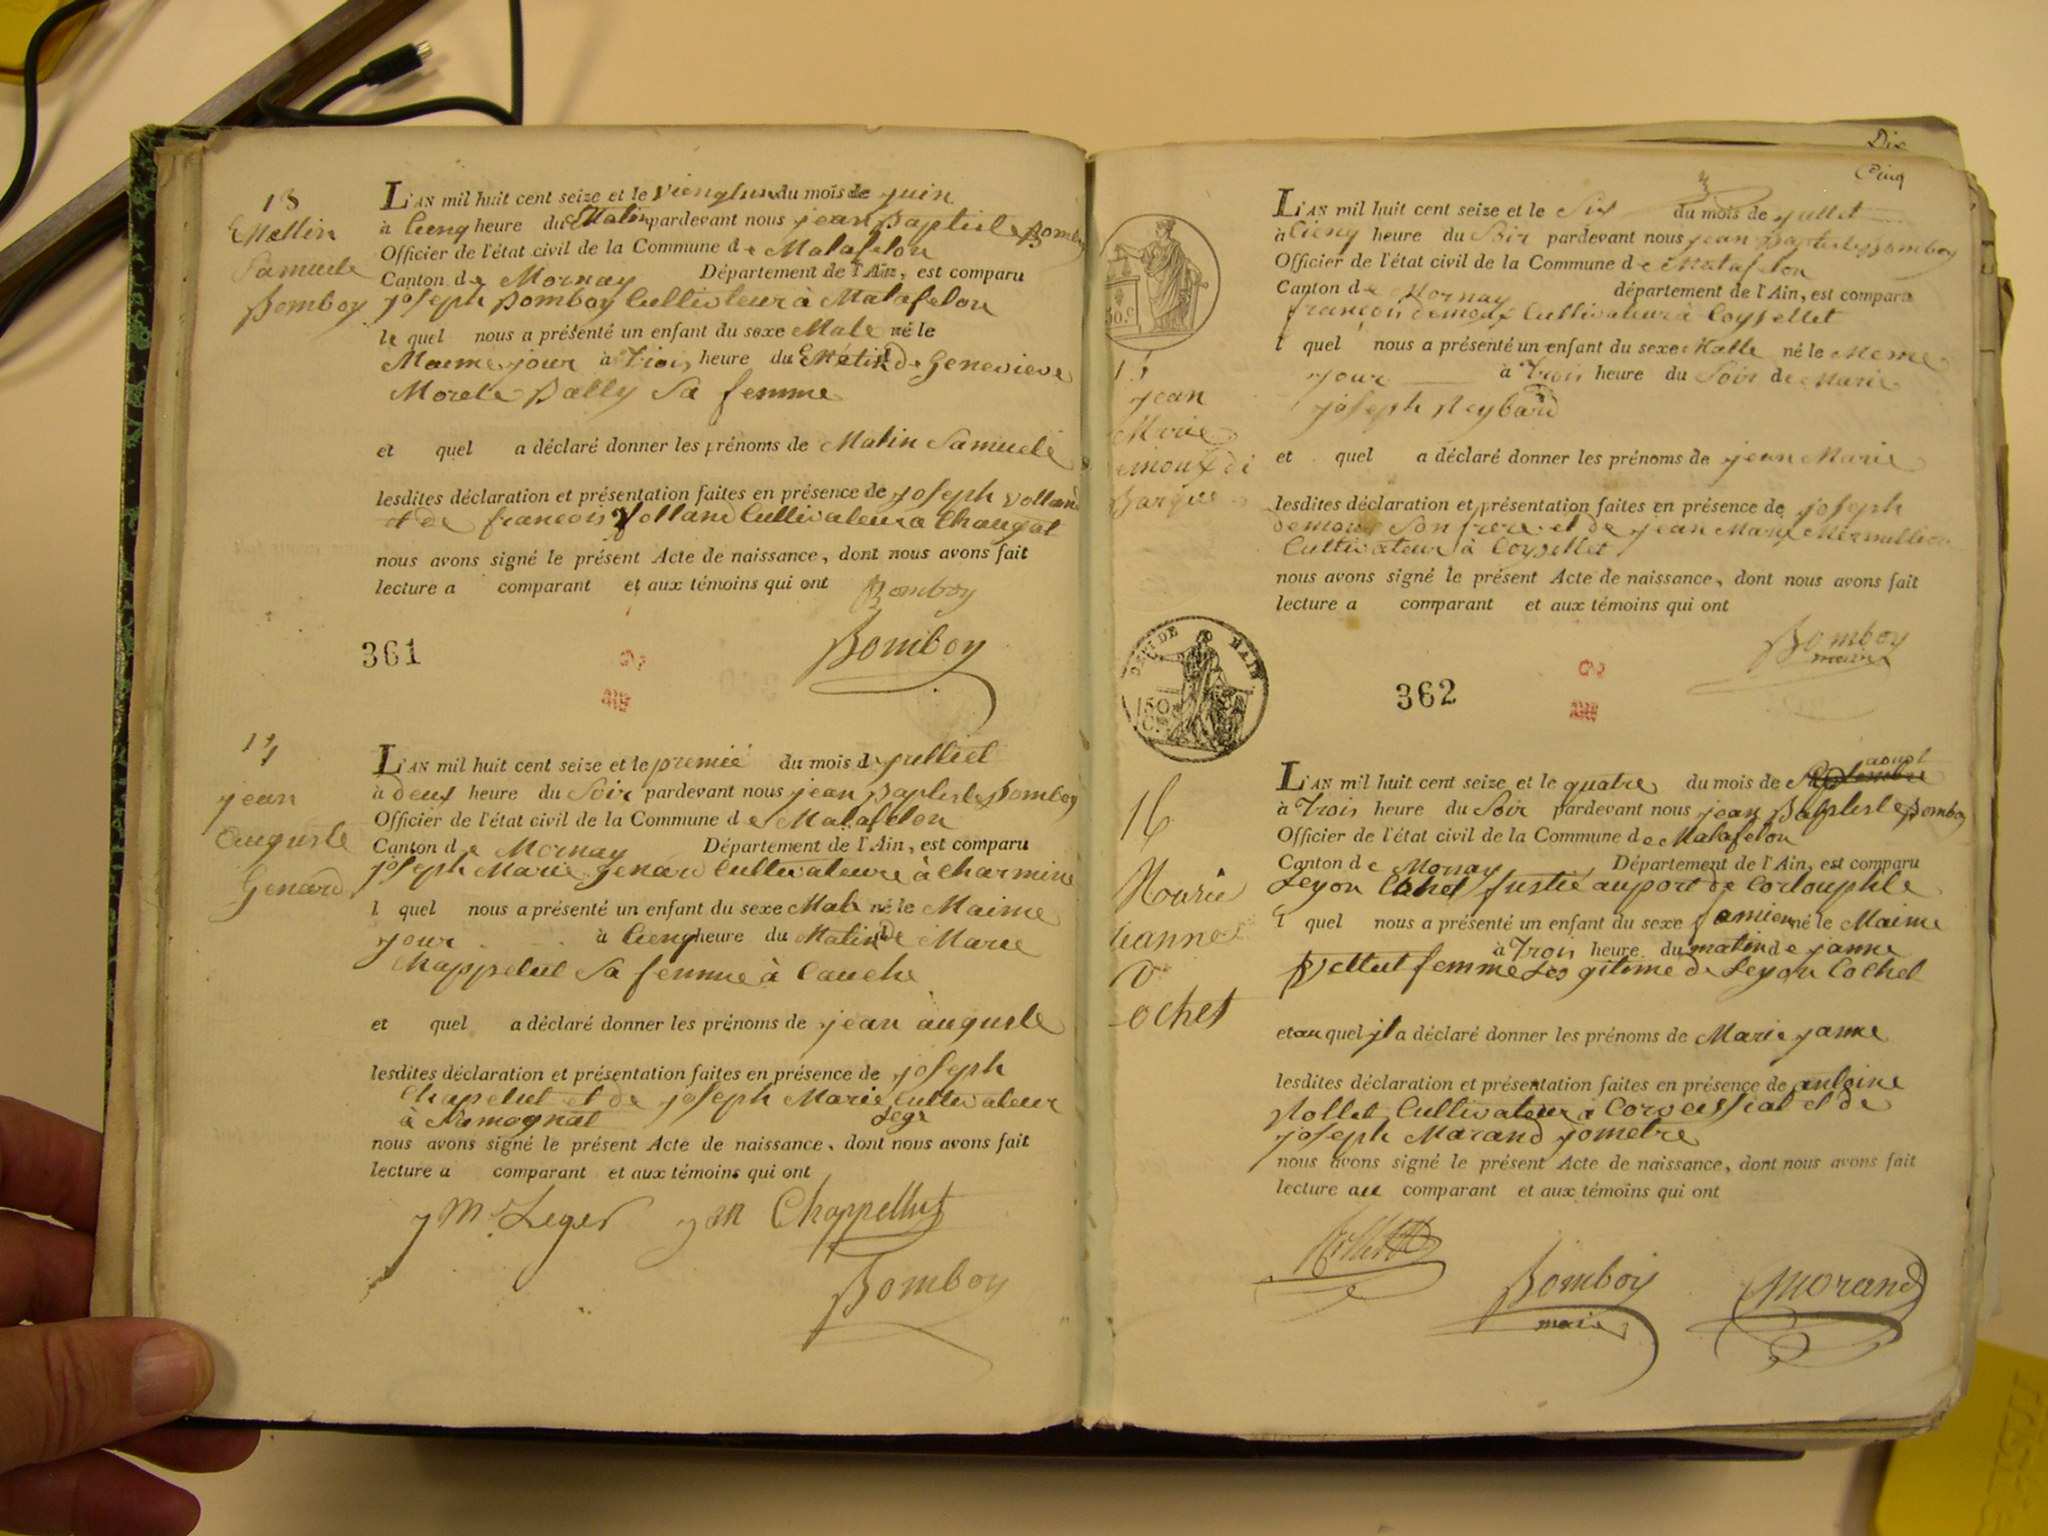 13
Mallin
Samuele
Bomboy
L'AN mil huit cent seize et le viengtun du mois de juin
à Cienq heure du Matin pardevant nous jean Baptiste Bomboy
Officier de l'état civil de la Commune de Matafelon
Canton de Mornay Département de l'Ain, est comparu
joseph Bomboy Cultivateur à Matafelon
le quel nous a présenté un enfant du sexe Male né le
Maime jour à Trois heure du Matin de Genevieve
Morele Bally Sa femme
et quel a déclaré donner les prénoms de Malin Samuele
lesdites déclaration et présentation faites en présence de joseph Volland
et de francois Volland Cultivateur a Changat
nous avons signé le présent Acte de naissance, dont nous avons fait
lecture a comparant et aux témoins qui ont Bomboy
Bomboy
361
14
jean
auguste
Genard
L'AN mil huit cent seize et le premié du mois d julliet
à deux heure du Soir pardevant nous jean Baptiste Bomboy
Officier de l'état civil de la Commune de Matafelon
Canton de Mornay Département de l'Ain, est comparu
joseph Marie genard Cultivateure à Charmine
l quel nous a présenté un enfant du sexe Male né le Maime
jour à Cienq heure du Matin De Marie
Chappelut Sa femme à Cauche
et quel a déclaré donner les prénoms de jean auguste
lesdites déclaration et présentation faites en présence de joseph
Chapelut et de joseph Marie Cultivateur
à Samognat lege
nous avons signé le présent Acte de naissance, dont nous avons fait
lecture a comparant et aux témoins qui ont
j M. Leger j m Chappellut
Bomboy
Dix
Cinq
50.C
15
jean
Marie
emoux di
Barque
L'AN mil huit cent seize et le Six du mois de jullet
à Cienq heure du Soir pardevant nous jean Baptiste Bomboy
Officier de l'état civil de la Commune de Matafelon
Canton de Mornay département de l'Ain, est comparu
françois demoux Cultivateur à Coysellet
l quel nous a présenté un enfant du sexe Malle né le Meme
jour à Trois heure du Soir de Marie
joseph Reybard
et quel a déclaré donner les prénoms de jean Marie
lesdites déclaration et présentation faites en présence de joseph
demoux Son frere et de jean Marie Mermillion
Cultivateur à Coysellet
nous avons signé le présent Acte de naissance, dont nous avons fait
lecture a comparant et aux témoins qui ont
Bomboy
maire
362
150
16
Marie
janne
ochet
L'AN mil huit cent seize et le quatre du mois de Septembre aoust
à Trois heure du Soir pardevant nous jean Baptiste Bomboy
Officier de l'état civil de la Commune de Matafelon
Canton de Mornay Département de l'Ain, est comparu
Leyon Cochet fustié au port de Corlouphle
l quel nous a présenté un enfant du sexe famien né le Maime
à Trois heure du matin de janne
Vettut femme Les gitime de Leyon Cochet
et au quel jl a déclaré donner les prénoms de Marie janne
lesdites déclaration et présentation faites en présence de antoine
Rollet Cultivateur à Corveissiat et de
joseph Marand jometre
nous avons signé le présent Acte de naissance, dont nous avons fait
lecture au comparant et aux témoins qui ont
Bomboy
maire
Morand